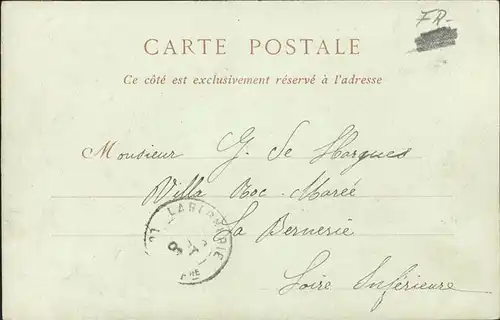 FR-
CARTE POSTALE
Ce côté est exclusivement réservé à l'adresse
Monsieur G. de
Villa Roc-Marée
La Bernerie
Loire Inférieure